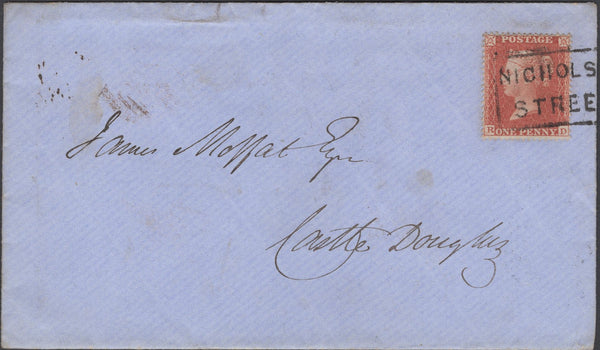 POSTAGE
NICHOLS
STREE
R ONE PENNY D
James Moffat Esqr
Castle Douglas